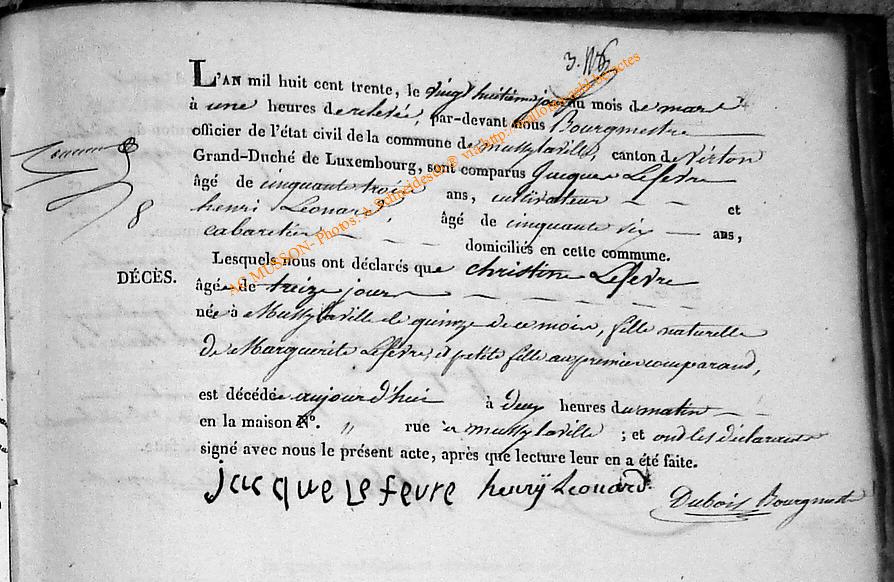 L'AN mil huit cent trente, le vingt huitième jour du mois de mars
à une heures de relevée, par-devant nous Bourgmestre
officier de l'état civil de la commune de mussylaville, canton de Virton
Grand-Duché de Luxembourg, sont comparus Jacques Lefevre
âgé de cinquante trois ans, cultivateur et
henri Leonard, âgé de cinquante six ans,
cabaretier domiciliés en cette commune.
Lesquels nous ont déclarés que christine Lefevre
DÉCÈS.
8
âgée de treize jours
née à Mussylaville le quinze de ce mois, fille naturelle
de Marguerite Lefevre, et petite fille au premier comparand,
est décédée aujourd'hui à deux heures du matin
en la maison N°. " rue à mussylaville ; et ont les déclarants
signé avec nous le présent acte, après que lecture leur en a été faite.
jacque Lefevre henrÿ Leonard
Dubois Bourgmestre
AC MUSSON- Photos: A. Schneidesch® via http://